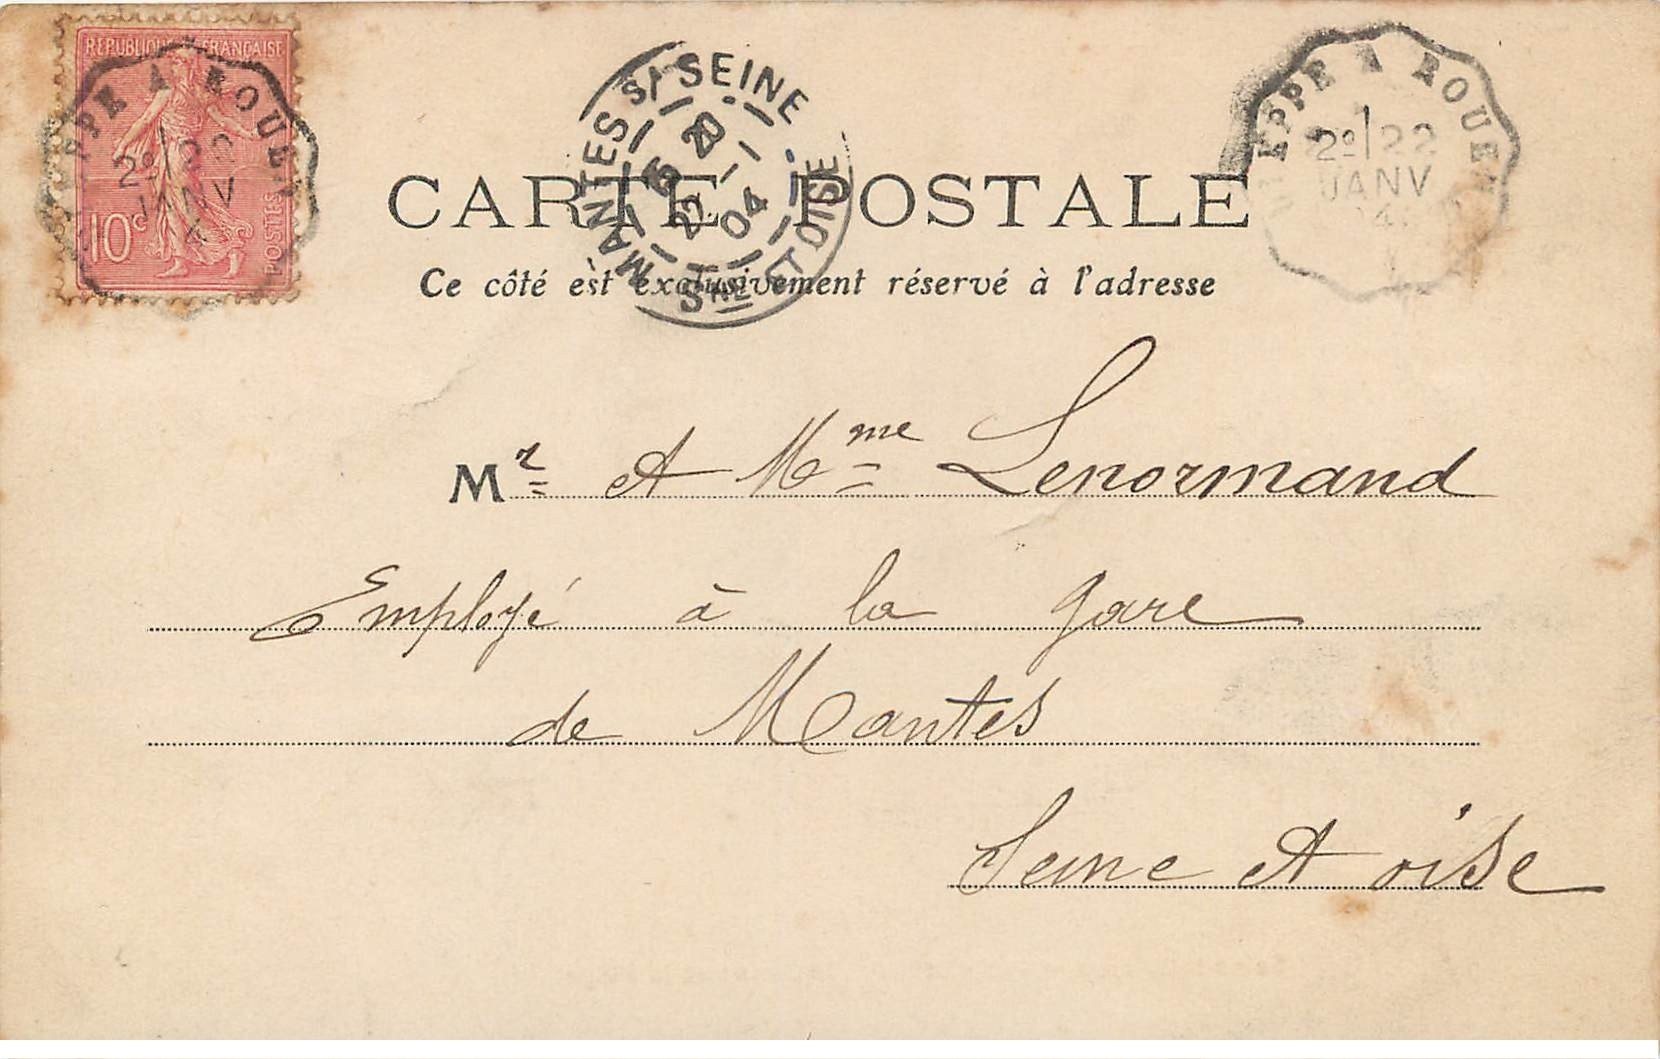 REPUBLIQUE FRANÇAISE
10c POSTES
DIEPPE A ROUEN
2º 22
JANV
MANTES S/ SEINE
20
22 - 1
04
SNE ET OISE
DIEPPE A ROUEN
2º 22
JANV
04
CARTE POSTALE
Ce côté est exclusivement réservé à l'adresse
Mr et Mme Lenormand
Employé à la gare
de Mantes
Seine et oise